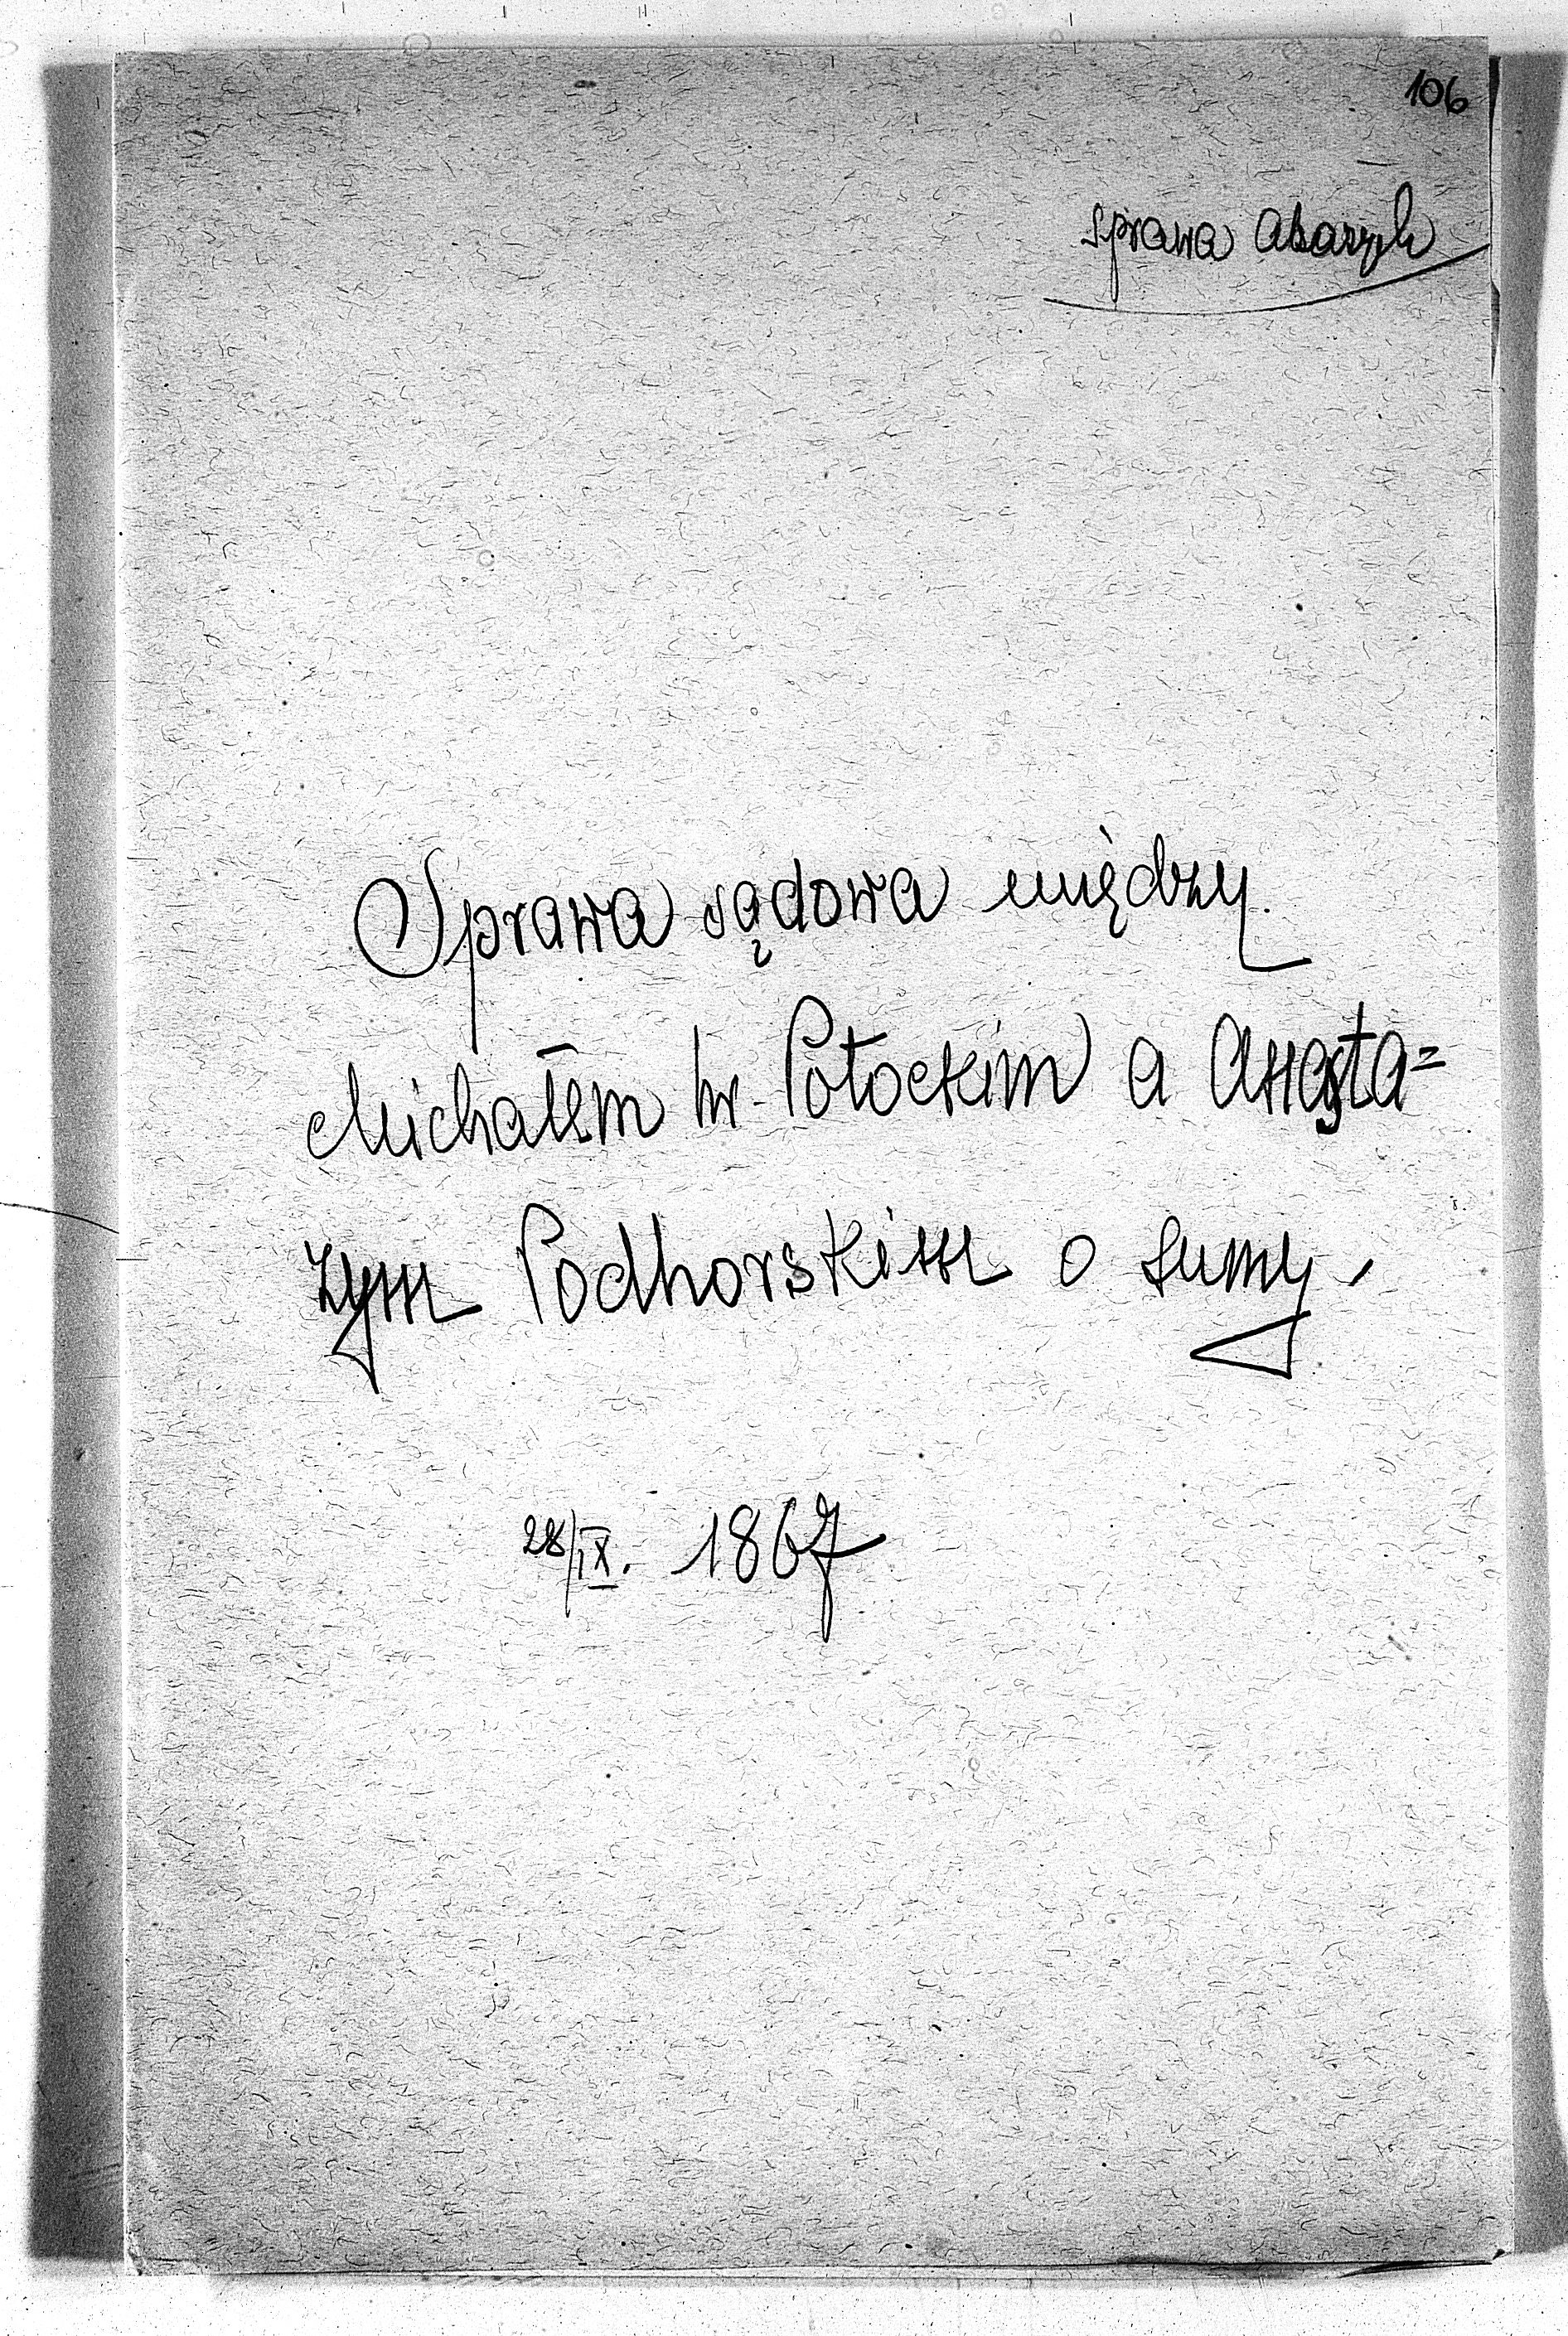 106
sprawa
Sprawa sądowa między
Michałem hr. Potockim a Anasta=
zym Podhorskim o sumy.
28/IX. 1867